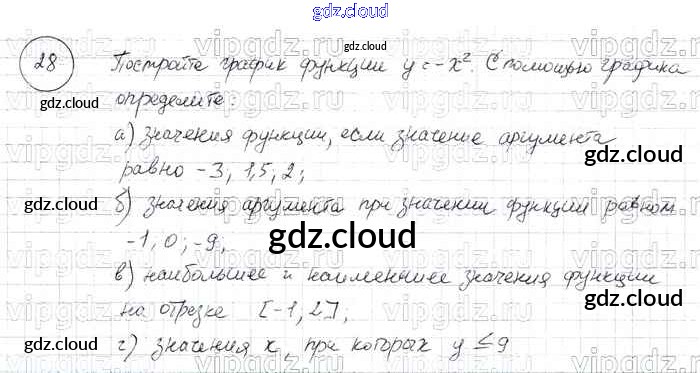 gdz.cloud
28 Постройте график функции y = -x². С помощью графика
определите:
а) значения функции, если значение аргумента
равно -3, 1,5, 2;
б) значения аргумента при значении функции равном
-1, 0; -9,
в) наибольшее и наименьшее значения функции
на отрезке [-1, 2];
г) значения x, при которых y ≤ 9
gdz.cloud
gdz.cloud
gdz.cloud
gdz.cloud
gdz.cloud
gdz.cloud
gdz.cloud
gdz.cloud